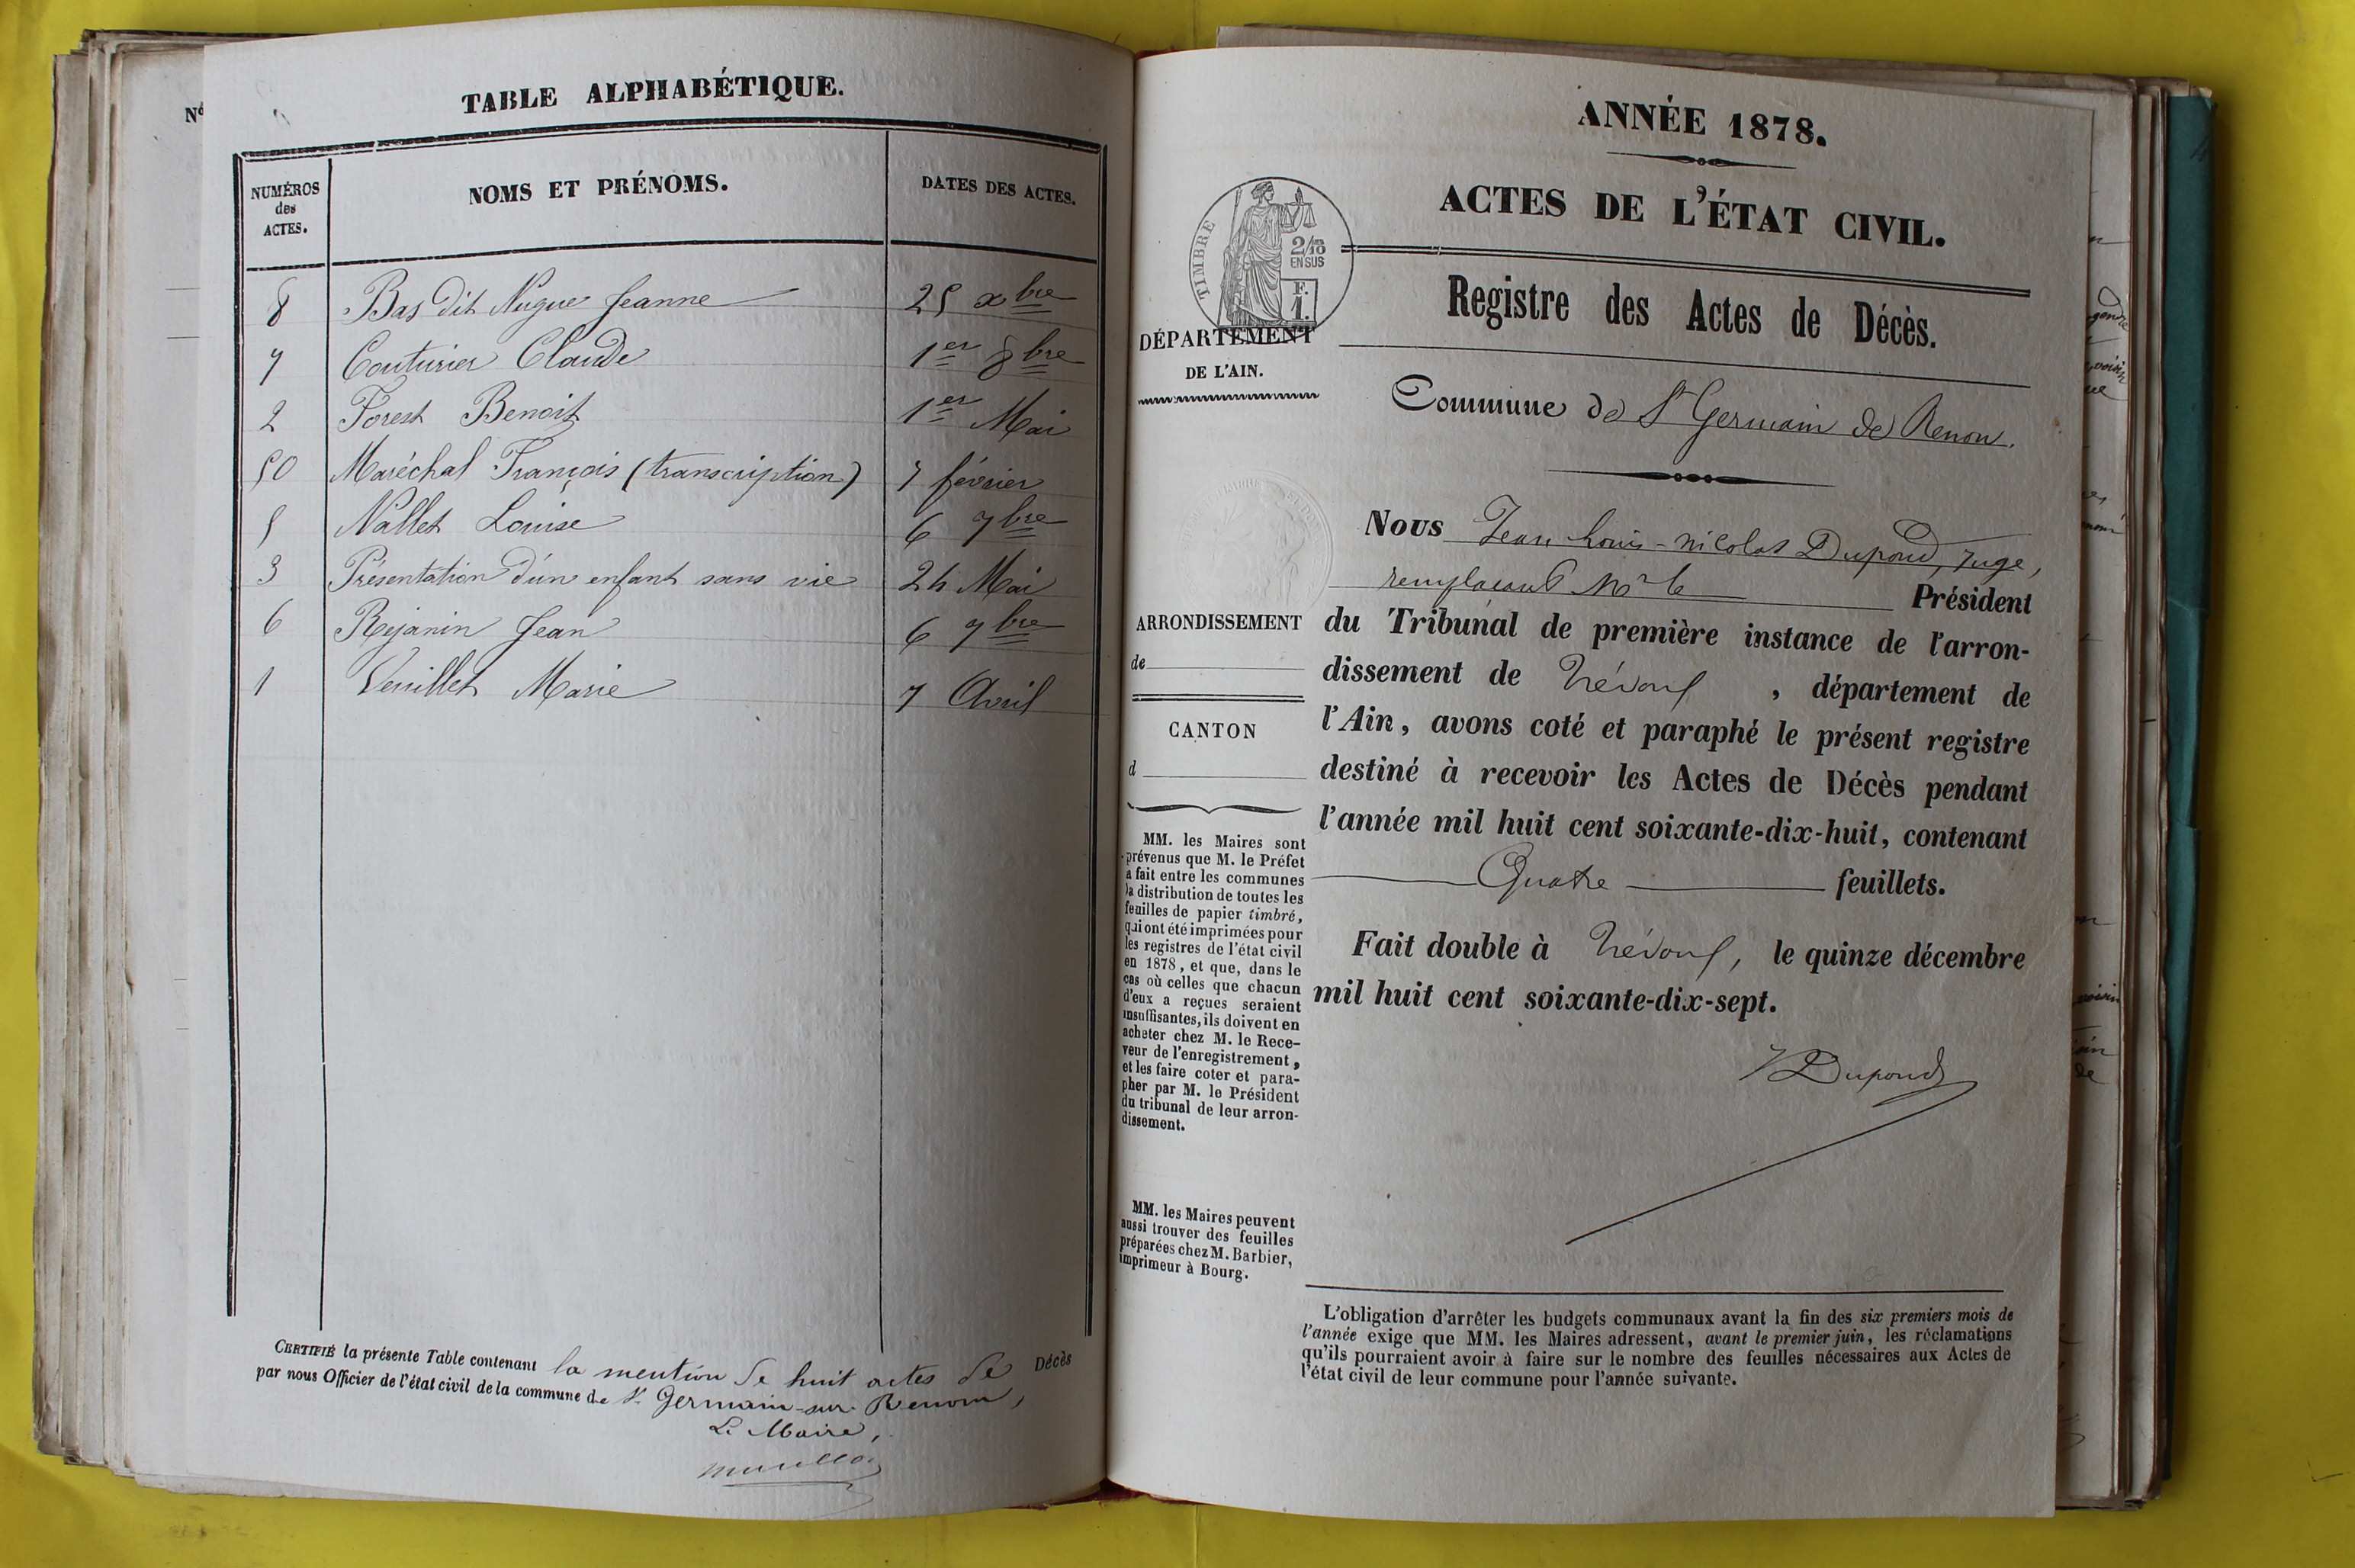 TABLE ALPHABÉTIQUE.
NUMÉROS des ACTES. NOMS ET PRÉNOMS. DATES DES ACTES.
8 Bas dit Nugue Jeanne 25 xbre
7 Couturier Claude 1er 8bre
2 Forest Benoit 1er Mai
50 Maréchal François (transcription) 7 février
5 Nallet Louise 6 7bre
3 Présentation d'un enfant sans vie 24 Mai
6 Rejanin Jean 6 7bre
1 Veuillet Marie 7 Avril
CERTIFIÉ la présente Table contenant la mention de huit actes de Décès
par nous Officier de l'état civil de la commune de St Germain-sur-Renom,
Le Maire,
ANNÉE 1878.
ACTES DE L'ÉTAT CIVIL.
TIMBRE
2/10
EN SUS
F.
1.
Registre des Actes de Décès.
DÉPARTEMENT
DE L'AIN.
Commune de St Germain de Renon.
Nous Jean Louis-nicolas Dupond, Juge,
remplacant Mr le Président
ARRONDISSEMENT
de
CANTON
d
du Tribunal de première instance de l'arron-
dissement de Trévoux, département de
l'Ain, avons coté et paraphé le présent registre
destiné à recevoir les Actes de Décès pendant
l'année mil huit cent soixante-dix-huit, contenant
Quatre feuillets.
Fait double à Trévoux, le quinze décembre
mil huit cent soixante-dix-sept.
Dupond
MM. les Maires sont
prévenus que M. le Préfet
a fait entre les communes
la distribution de toutes les
feuilles de papier timbré,
qui ont été imprimées pour
les registres de l'état civil
en 1878, et que, dans le
cas où celles que chacun
d'eux a reçues seraient
insuffisantes, ils doivent en
acheter chez M. le Rece-
veur de l'enregistrement,
et les faire coter et para-
pher par M. le Président
du tribunal de leur arron-
dissement.
MM. les Maires peuvent
aussi trouver des feuilles
préparées chez M. Barbier,
imprimeur à Bourg.
L'obligation d'arrêter les budgets communaux avant la fin des six premiers mois de
l'année exige que MM. les Maires adressent, avant le premier juin, les réclamations
qu'ils pourraient avoir à faire sur le nombre des feuilles nécessaires aux Actes de
l'état civil de leur commune pour l'année suivante.